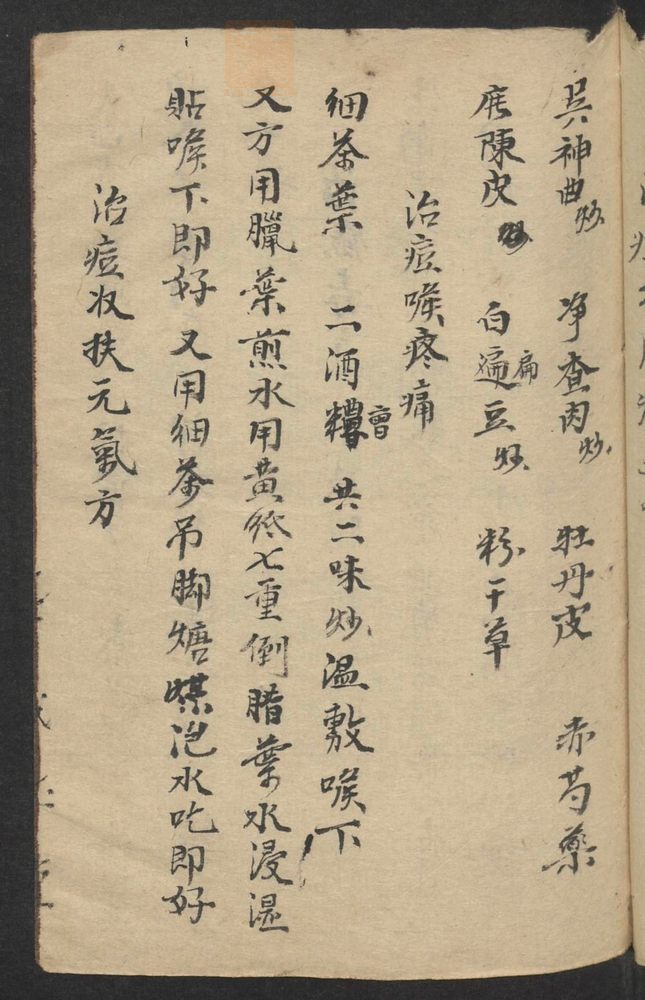 吴神曲炒 净查肉炒 牡丹皮 赤芍藥
陳皮炒 白遍扁豆炒 粉干草
治痘喉疼痛
细茶葉 二酒糟曹 共二味炒温敷喉下
又方用臘葉煎水用黄紙七重倒腊葉水浸湿
貼喉下即好 又用细茶吊脚煻煤泡水吃即好
治痘收扶元氣方